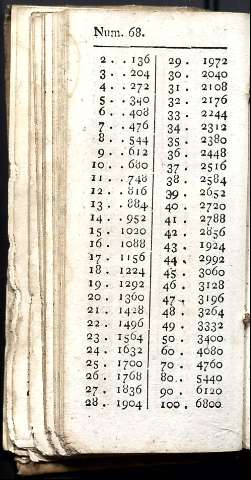 Num. 68.
2 . . 136
3 . . 204
4 . . 272
5 . . 340
6 . . 408
7 . . 476
8 . . 544
9 . . 612
10 . . 680
11 . . 748
12 . . 816
13 . . 884
14 . . 952
15 . 1020
16 . 1088
17 . 1156
18 . 1224
19 . 1292
20 . 1360
21 . 1428
22 . 1496
23 . 1564
24 . 1632
25 . 1700
26 . 1768
27 . 1836
28 . 1904
29 . 1972
30 . 2040
31 . 2108
32 . 2176
33 . 2244
34 . 2312
35 . 2380
36 . 2448
37 . 2516
38 . 2584
39 . 2652
40 . 2720
41 . 2788
42 . 2856
43 . 1924
44 . 2992
45 . 3060
46 . 3128
47 . 3196
48 . 3264
49 . 3332
50 . 3400
60 . 4080
70 . 4760
80 . 5440
90 . 6120
100 . 6800